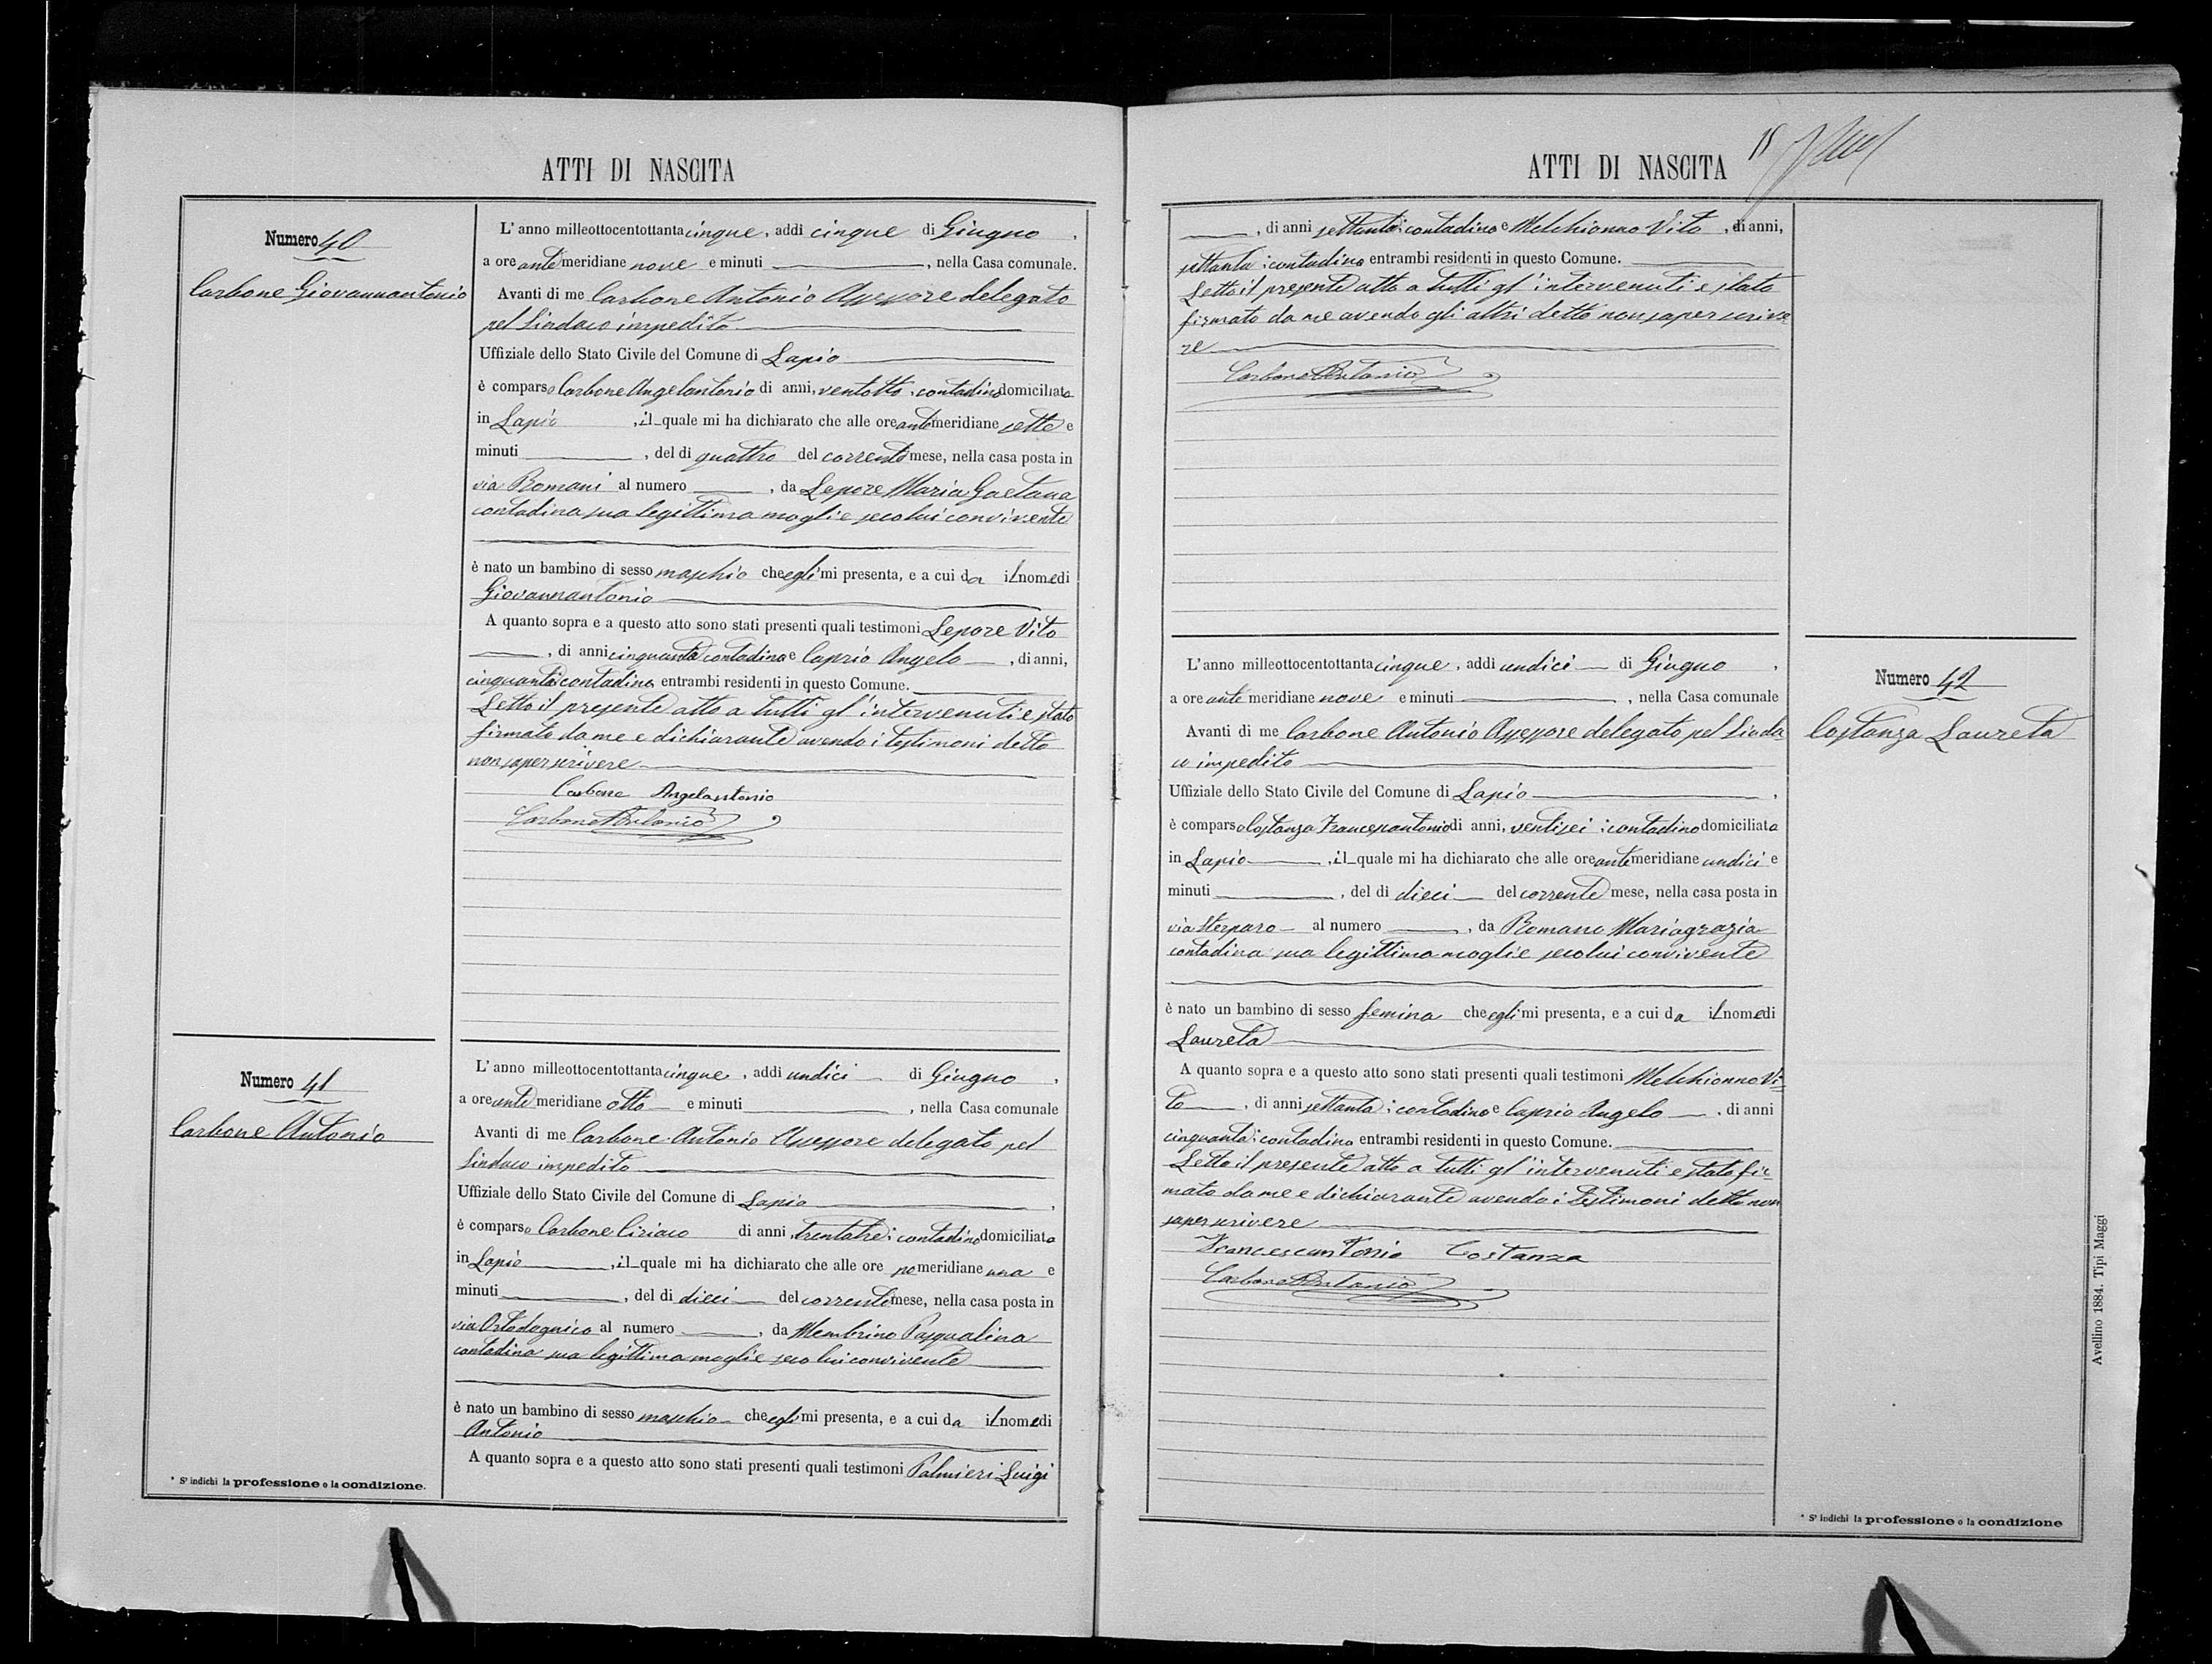 ATTI DI NASCITA
Numero 40
Carbone Giovannantonio
L'anno milleottocentottantacinque, addi cinque di Giugno,
a ore antemeridiane nove e minuti, nella Casa comunale.
Avanti di me Carbone Antonio Assessore delegato
pel Sindaco impedito
Uffiziale dello Stato Civile del Comune di Lapio
è comparso Carbone Angelantonio di anni, ventotto, contadino domiciliato
in Lapio, il quale mi ha dichiarato che alle ore antemeridiane sette e
minuti, del dì quattro del corrente mese, nella casa posta in
via Romani al numero, da Lepore Maria Gaetana
contadina sua legittima moglie secolui convivente
è nato un bambino di sesso maschio che egli mi presenta, e a cui da il nome di
Giovannantonio
A quanto sopra e a questo atto sono stati presenti quali testimoni Lepore Vito
, di anni cinquanta contadino e Caprio Angelo, di anni,
cinquanta contadino entrambi residenti in questo Comune.
Letto il presente atto a tutti gl'intervenuti e stato
firmato da me e dichiarante avendo i testimoni detto
non saper scrivere
Carbone Angelantonio
Carbone Antonio
Numero 41
Carbone Antonio
L'anno milleottocentottantacinque, addi undici di Giugno,
a ore antemeridiane otto e minuti, nella Casa comunale
Avanti di me Carbone Antonio Assessore delegato pel
Sindaco impedito
Uffiziale dello Stato Civile del Comune di Lapio,
è comparso Carbone Ciriaco di anni, trentatre; contadino domiciliato
in Lapio, il quale mi ha dichiarato che alle ore pomeridiane una e
minuti, del dì dieci del corrente mese, nella casa posta in
via Ortodognico al numero, da Membrino Pasqualina
contadina sua legittima moglie secolui convivente
è nato un bambino di sesso maschio che egli mi presenta, e a cui da il nome di
Antonio
A quanto sopra e a questo atto sono stati presenti quali testimoni Palmieri Luigi
* S'indichi la professione o la condizione.
ATTI DI NASCITA
, di anni settanta; contadino e Melchionno Vito, di anni,
settanta; contadino entrambi residenti in questo Comune.
Letto il presente atto a tutti gl'intervenuti e stato
firmato da me avendo gli altri detto non saper scrive
re
Carbone Antonio
Numero 42
Costanza Laureta
L'anno milleottocentottantacinque, addi undici di Giugno,
a ore antemeridiane nove e minuti, nella Casa comunale
Avanti di me Carbone Antonio Assessore delegato pel Sinda
co impedito
Uffiziale dello Stato Civile del Comune di Lapio,
è comparso Costanza Francescantonio di anni, ventisei; contadino domiciliato
in Lapio, il quale mi ha dichiarato che alle ore antemeridiane undici e
minuti, del dì dieci del corrente mese, nella casa posta in
via Sterparo al numero, da Romano Mariagrazia
contadina sua legittima moglie secolui convivente
è nato un bambino di sesso femina che egli mi presenta, e a cui da il nome di
Laureta
A quanto sopra e a questo atto sono stati presenti quali testimoni Melchionno Vi=
to, di anni settanta; contadino e Caprio Angelo, di anni
cinquanta; contadino entrambi residenti in questo Comune.
Letto il presente atto a tutti gl'intervenuti e stato fir
mato da me e dichiarante avendo i testimoni detto non
saper scrivere
Francescantonio Costanza
Carbone Antonio
* S'indichi la professione o la condizione
Avellino 1884. Tipi Maggi